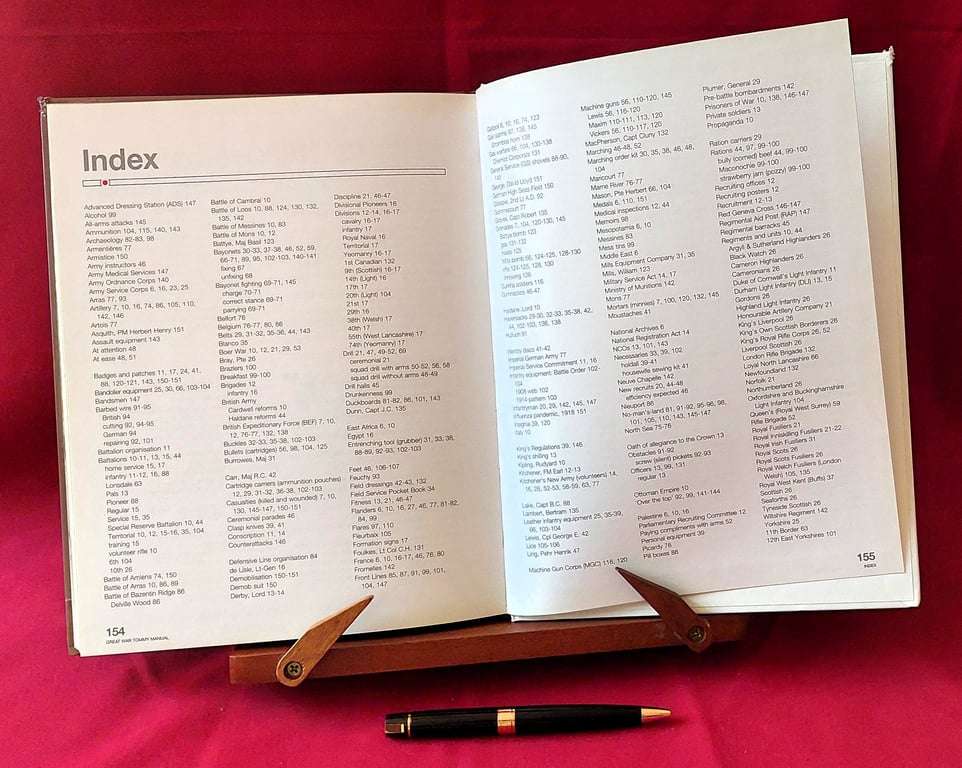 Index
Advanced Dressing Station (ADS) 147
Alcohol 99
All-arms attacks 145
Ammunition 104, 115, 140, 143
Archaeology 82-83, 98
Armentières 77
Armistice 150
Army instructors 46
Army Medical Services 147
Army Ordnance Corps 140
Army Service Corps 6, 16, 23, 25
Arras 77, 93
Artillery 7, 10, 16, 74, 86, 105, 110,
142, 146
Artois 77
Asquith, PM Herbert Henry 151
Assault equipment 143
At attention 48
At ease 48, 51
Badges and patches 11, 17, 24, 41,
88, 120-121, 143, 150-151
Bandolier equipment 25, 30, 66, 103-104
Bandsmen 147
Barbed wire 91-95
British 94
cutting 92, 94-95
German 94
repairing 92, 101
Battalion organisation 11
Battalions 10-11, 13, 15, 44
home service 15, 17
infantry 11-12, 16, 88
Lonsdale 63
Pals 13
Pioneer 88
Regular 15
Service 15, 35
Special Reserve Battalion 10, 44
Territorial 10, 12, 15-16, 35, 104
training 15
volunteer rifle 10
6th 104
10th 26
Battle of Amiens 74, 150
Battle of Arras 10, 86, 89
Battle of Bazentin Ridge 86
Delville Wood 86
Battle of Cambrai 10
Battle of Loos 10, 88, 124, 130, 132,
135, 142
Battle of Messines 10, 83
Battle of Mons 10, 12
Battye, Maj Basil 123
Bayonets 30-33, 37-38, 46, 52, 59,
66-71, 89, 95, 102-103, 140-141
fixing 67
unfixing 68
Bayonet fighting 69-71, 145
charge 70-71
correct stance 69-71
parrying 69-71
Belfort 76
Belgium 76-77, 80, 86
Belts 29, 31-32, 35-36, 44, 143
Blanco 35
Boer War 10, 12, 21, 29, 53
Bray, Pte 26
Braziers 100
Breakfast 99-100
Brigades 12
infantry 16
British Army
Cardwell reforms 10
Haldane reforms 44
British Expeditionary Force (BEF) 7, 10,
12, 76-77, 132, 138
Buckles 32-33, 35-38, 102-103
Bullets (cartridges) 56, 98, 104, 125
Burrowes, Maj 31
Carr, Maj R.C. 42
Cartridge carriers (ammunition pouches)
12, 29, 31-32, 36-38, 102-103
Casualties (killed and wounded) 7, 10,
130, 145-147, 150-151
Ceremonial parades 46
Clasp knives 39, 41
Conscription 11, 14
Counterattacks 146
Defensive Line organisation 84
de Lisle, Lt-Gen 16
Demobilisation 150-151
Demob suit 150
Derby, Lord 13-14
Discipline 21, 46-47
Divisional Pioneers 16
Divisions 12-14, 16-17
cavalry 16-17
infantry 17
Royal Naval 16
Territorial 17
Yeomanry 16-17
1st Canadian 132
9th (Scottish) 16-17
14th (Light) 16
17th 17
20th (Light) 104
21st 17
29th 16
38th (Welsh) 17
40th 17
55th (West Lancashire) 17
74th (Yeomanry) 17
Drill 21, 47, 49-52, 69
ceremonial 21
squad drill with arms 50-52, 56, 58
squad drill without arms 48-49
Drill halls 45
Drunkenness 99
Duckboards 81-82, 86, 101, 143
Dunn, Capt J.C. 135
East Africa 6, 10
Egypt 16
Entrenching tool (grubber) 31, 33, 38,
88-89, 92-93, 102-103
Feet 46, 106-107
Feuchy 93
Field dressings 42-43, 132
Field Service Pocket Book 34
Fitness 13, 21, 46-47
Flanders 6, 10, 16, 27, 46, 77, 81-82,
84, 99
Flares 97, 110
Fleurbaix 105
Formation signs 17
Foulkes, Lt Col C.H. 131
France 6, 10, 16-17, 46, 76, 80
Fromelles 142
Front Lines 85, 87, 91, 99, 101,
104, 147
154
GREAT WAR TOMMY MANUAL
Gallipoli 6, 10, 16, 74, 123
George, David Lloyd 151
German High Seas Field 150
Gommecourt 77
Graves, Capt Robert 138
Grenades 7, 104, 120-130, 145
Battye Bomb 123
Gumboots
Gymnastics 46-47
Haldane, Lord 10
Haversacks 29-30, 32-33, 35-38, 42,
44, 102 103, 136, 138
Hulluch 91
Identity discs 41-42
Imperial German Army 77
Imperial Service Commitment 11, 16
Infantry equipment: Battle Order 102-
104
1908 web 102
1914 pattern 103
Infantryman 20, 29, 142, 145, 147
Influenza pandemic, 1918 151
Insignia 39, 120
Italy 10
King's Regulations 39, 146
King's shilling 13
Kipling, Rudyard 10
Kitchener, FM Earl 12-13
Kitchener's New Army (volunteers) 14,
16, 26, 52-53, 58-59, 63, 77
Lake, Capt B.C. 88
Lambert, Bertram 135
Leather infantry equipment 25, 35-39,
66, 103-104
Lewis, Cpl George E. 42
Lice 105-106
Ling, Pehr Henrik 47
Machine Gun Corps (MGC) 116, 120
Machine guns 56, 110-120, 145
Lewis 56, 116-120
Maxim 110-111, 113, 120
Vickers 56, 110-117, 120
MacPherson, Capt Cluny 132
Marching 46-48, 52
Marching order kit 30, 35, 38, 46, 48,
104
Maricourt 77
Marne River 76-77
Mason, Pte Herbert 66, 104
Medals 6, 110, 151
Medical inspections 12, 44
Memoirs 98
Mesopotamia 6, 10
Messines 83
Mess tins 99
Middle East 6
Mills Equipment Company 31, 35
Mills, William 123
Military Service Act 14, 17
Ministry of Munitions 142
Mons 77
Mortars (minnies) 7, 100, 120, 132, 145
Moustaches 41
National Archives 6
National Registration Act 14
NCOs 13, 101, 143
Necessaries 33, 39, 102
holdall 39-41
housewife sewing kit 41
Neuve Chapelle 142
New recruits 20, 44-48
efficiency expected 46
Nieuport 86
No-man's-land 81, 91-92, 95-96, 98,
101, 105, 110, 143, 145-147
North Sea 75-76
Oath of allegiance to the Crown 13
Obstacles 91-92
screw (silent) pickets 92-93
Officers 13, 99, 131
regular 13
Ottoman Empire 10
'Over the top' 92, 99, 141-144
Palestine 6, 10, 16
Parliamentary Recruiting Committee 12
Paying compliments with arms 52
Personal equipment 39
Picardy 76
Pill boxes 88
Plumer, General 29
Pre-battle bombardments 142
Prisoners of War 10, 138, 146-147
Private soldiers 13
Propaganda 10
Ration carriers 29
Rations 44, 97, 99-100
bully (corned) beef 44, 99-100
Maconochie 99-100
strawberry jam (pozzy) 99-100
Recruiting offices 12
Recruiting posters 12
Recruitment 12-13
Red Geneva Cross 146-147
Regimental Aid Post (RAP) 147
Regimental barracks 45
Regiments and units 10, 44
Argyll & Sutherland Highlanders 26
Black Watch 26
Cameron Highlanders 26
Cameronians 26
Duke of Cornwall's Light Infantry 11
Durham Light Infantry (DLI) 13, 15
Gordons 26
Highland Light Infantry 26
Honourable Artillery Company 21
King's Liverpool 26
King's Own Scottish Borderers 26
King's Royal Rifle Corps 26, 52
Liverpool Scottish 26
London Rifle Brigade 132
Loyal North Lancashire 66
Newfoundland 132
Norfolk 21
Northumberland 26
Oxfordshire and Buckinghamshire
Light Infantry 104
Queen's (Royal West Surrey) 59
Rifle Brigade 52
Royal Fusiliers 21
Royal Inniskilling Fusiliers 21-22
Royal Irish Fusiliers 31
Royal Scots 26
Royal Scots Fusiliers 26
Royal Welch Fusiliers (London
Welsh) 105, 135
Royal West Kent (Buffs) 37
Scottish 26
Seaforths 26
Tyneside Scottish 26
Wiltshire Regiment 142
Yorkshire 25
11th Border 63
12th East Yorkshires 101
155
INDEX